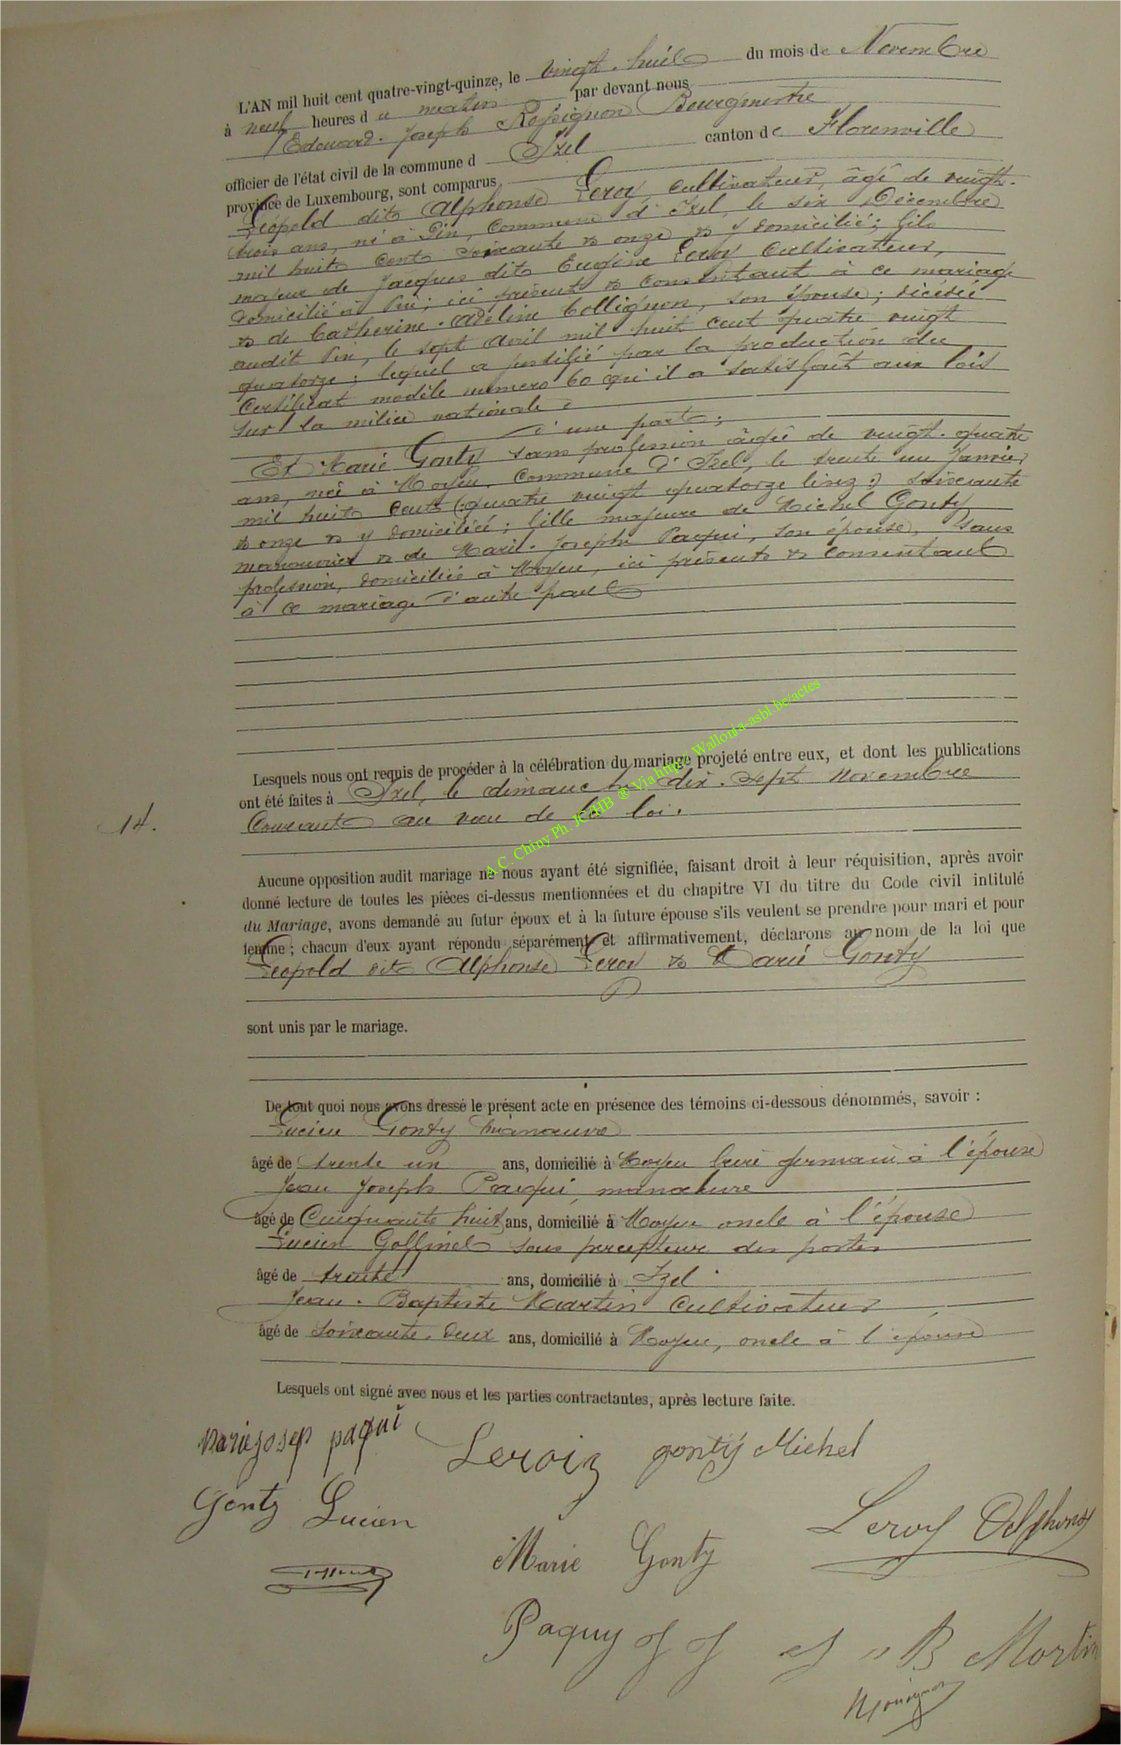 L'AN mil huit cent quatre-vingt-quinze, le vingt-huit du mois de Novembre
à neuf heures du matin par devant nous
Edouard-Joseph Rossignon Bourgmestre
officier de l'état civil de la commune d Izel canton de Florenville
province de Luxembourg, sont comparus
Léopold dit Alphonse Leroy cultivateur, âgé de vingt-
trois ans, né à Pin, Commune d'Izel, le six Décembre
mil huit cent soixante & onze & y domicilié; fils
majeur de Jacques dit Eugène Leroy Cultivateur,
domicilié à Pin; ici présent & consentant à ce mariage
& de Catherine-Adéline Collignon, son épouse; décédée
audit Pin, le sept Avril mil huit cent quatre vingt
quatorze; lequel a justifié par la production du
Certificat modèle numéro 60 qu'il a satisfait aux lois
sur la milice nationale
d'une part;
Et Marie Gonty sans profession âgée de vingt-quatre
ans, née à Moyen, Commune d'Izel, le trente un Janvier
mil huit cent (quatre vingt quatorze lisez:) soixante
& onze & y domiciliée; fille majeure de Michel Gonty
manouvrier & de Marie-Josephe Paqui, son épouse, sans
profession, domiciliés à Moyen, ici présents & consentant
à ce mariage d'autre part
Lesquels nous ont requis de procéder à la célébration du mariage projeté entre eux, et dont les publications
ont été faites à Izel, le dimanche dix-sept Novembre
14.
Courant au vœu de la loi.
A.C. Chiny Ph. JCHB ® Via http: Wallonia-asbl.be/actes
Aucune opposition audit mariage ne nous ayant été signifiée, faisant droit à leur réquisition, après avoir
donné lecture de toutes les pièces ci-dessus mentionnées et du chapitre VI du titre du Code civil intitulé
du Mariage, avons demandé au futur époux et à la future épouse s'ils veulent se prendre pour mari et pour
femme ; chacun d'eux ayant répondu séparément et affirmativement, déclarons au nom de la loi que
Léopold dit Alphonse Leroy & Marie Gonty
sont unis par le mariage.
De tout quoi nous avons dressé le présent acte en présence des témoins ci-dessous dénommés, savoir :
Lucien Gonty manœuvre
âgé de trente un ans, domicilié à Moyen frère germain à l'épouse
Jean Joseph Paqui, manœuvre
âgé de Cinquante huit ans, domicilié à Moyen oncle à l'épouse
Lucien Goffinet sous percepteur des postes
âgé de trente ans, domicilié à Izel
Jean-Baptiste Martin Cultivateur
âgé de Soixante-deux ans, domicilié à Moyen, oncle à l'épouse
Lesquels ont signé avec nous et les parties contractantes, après lecture faite.
Marie josep paqui Leroiz gontÿ Michel
Gonty Lucien Leroy Alphonse
Marie Gonty
Paquy J J J B Martin